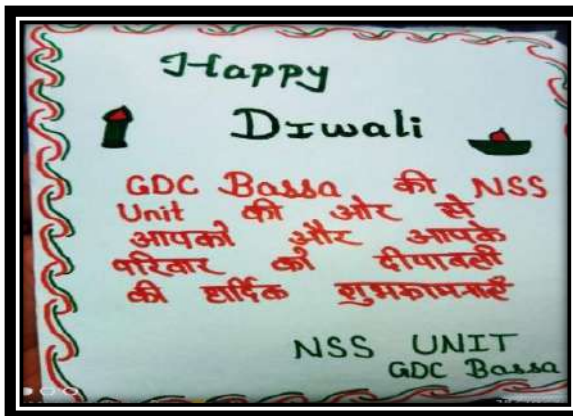 Happy
Diwali
GDC Bassa की NSS
Unit की ओर से
आपको और आपके
परिवार को दीपावली
की हार्दिक शुभकामनाएँ
NSS UNIT
GDC Bassa